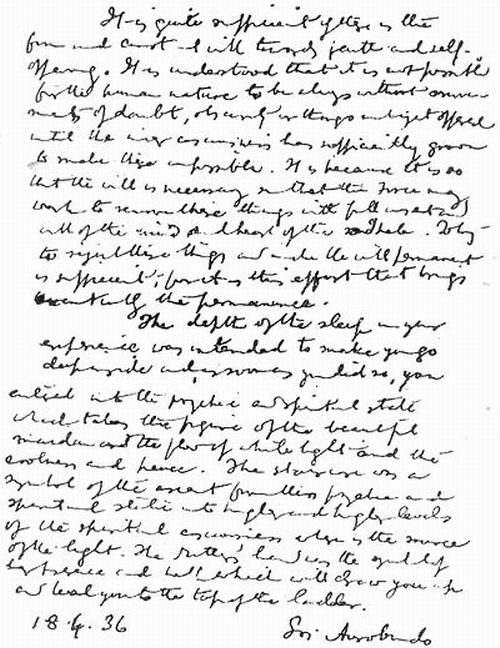 It is quite sufficient if there is the
firm and constant will towards faith and self-
offering. It is understood that it is not possible
for the human nature to be always without move-
ments of doubt, obscurity or things not yet offered
until the inner consciousness has sufficiently grown
to make these impossible. It is because it is so
that the will is necessary so that the Force may
work to remove these things with full consent and
will of the mind and heart of the sadhaka. To try
to reject these things and make the will permanent
is sufficient; for it is this effort that brings
eventually the permanence.
The depth of the sleep in your
experience was intended to make you go
deep inside and as soon as you did so, you
entered into the psychic and spiritual state
which takes the figure of the beautiful
maidan and the flow of white light and the
coolness and peace. The staircase was a
symbol of the ascent from this psychic and
spiritual state into higher and higher levels
of the spiritual consciousness where is the source
of the light. The Mother's hand was the symbol of
her presence and help which will draw you up
and lead you to the top of the ladder.
18.4.36 Sri Aurobindo